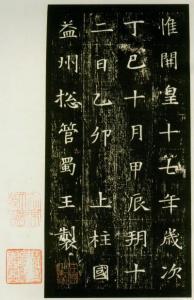 惟開皇十七年歲次
丁巳十月甲辰朔十
二日乙卯上柱國
益州総管蜀王製